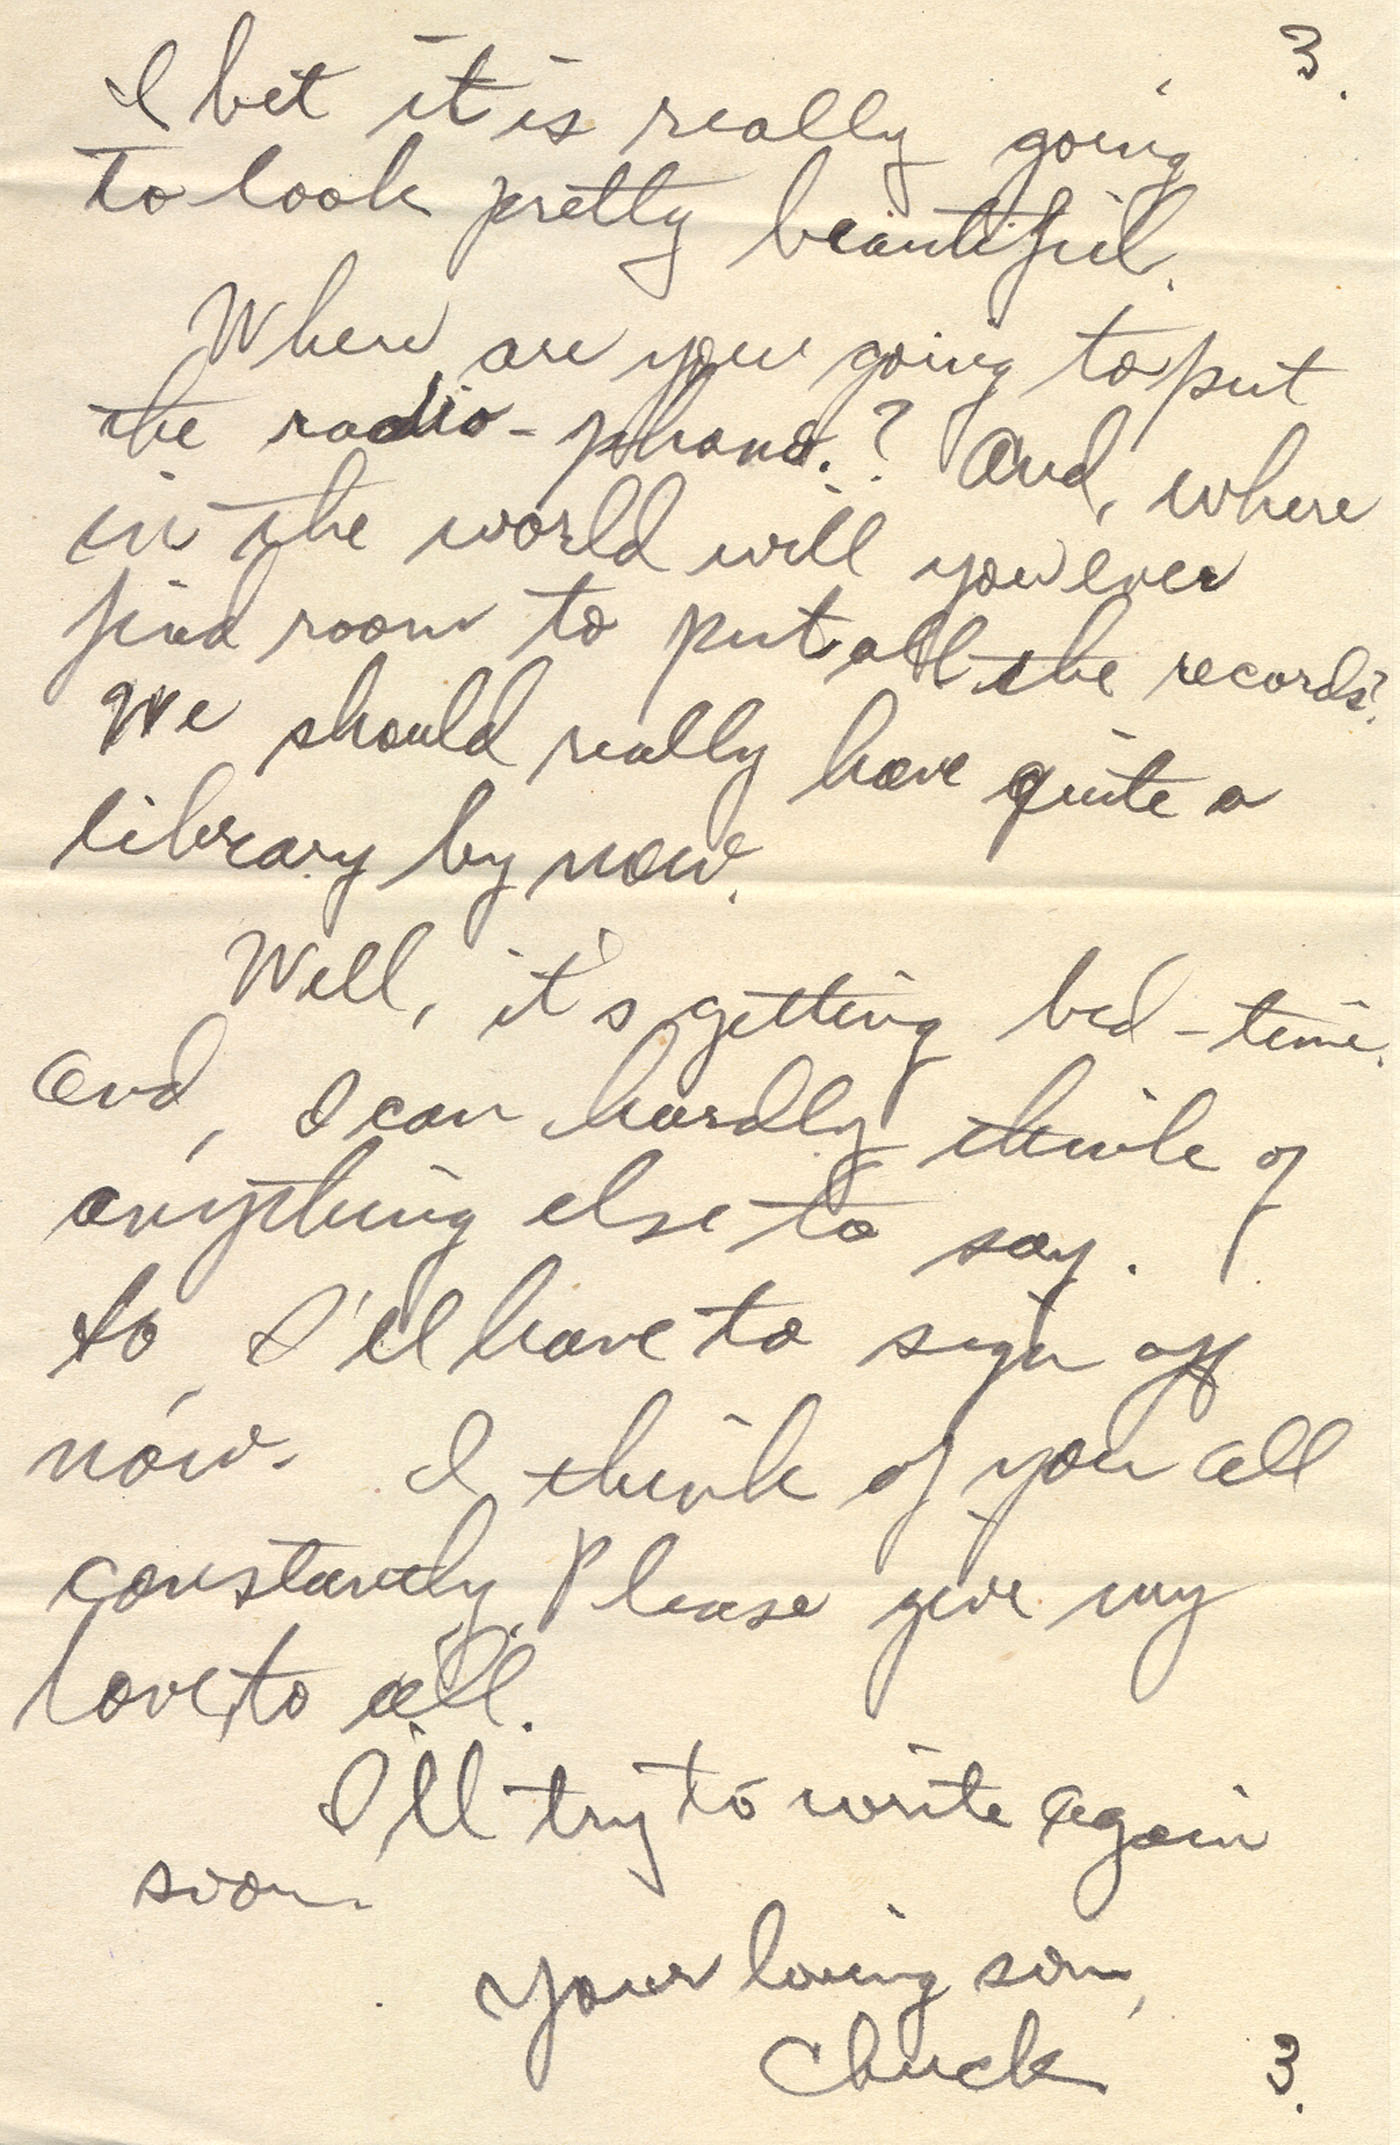 3.
I bet it is really going
to look pretty beautiful.
Where are you going to put
the radio-phono.? And, where
in the world will you ever
find room to put all the records?
We should really have quite a
library by now.
Well, it's getting bed-time.
And, I can hardly think of
anything else to say.
So I'll have to sign off
now. I think of you all
constantly. Please give my
love to all.
I'll try to write again
soon.
Your loving son,
Chuck
3.